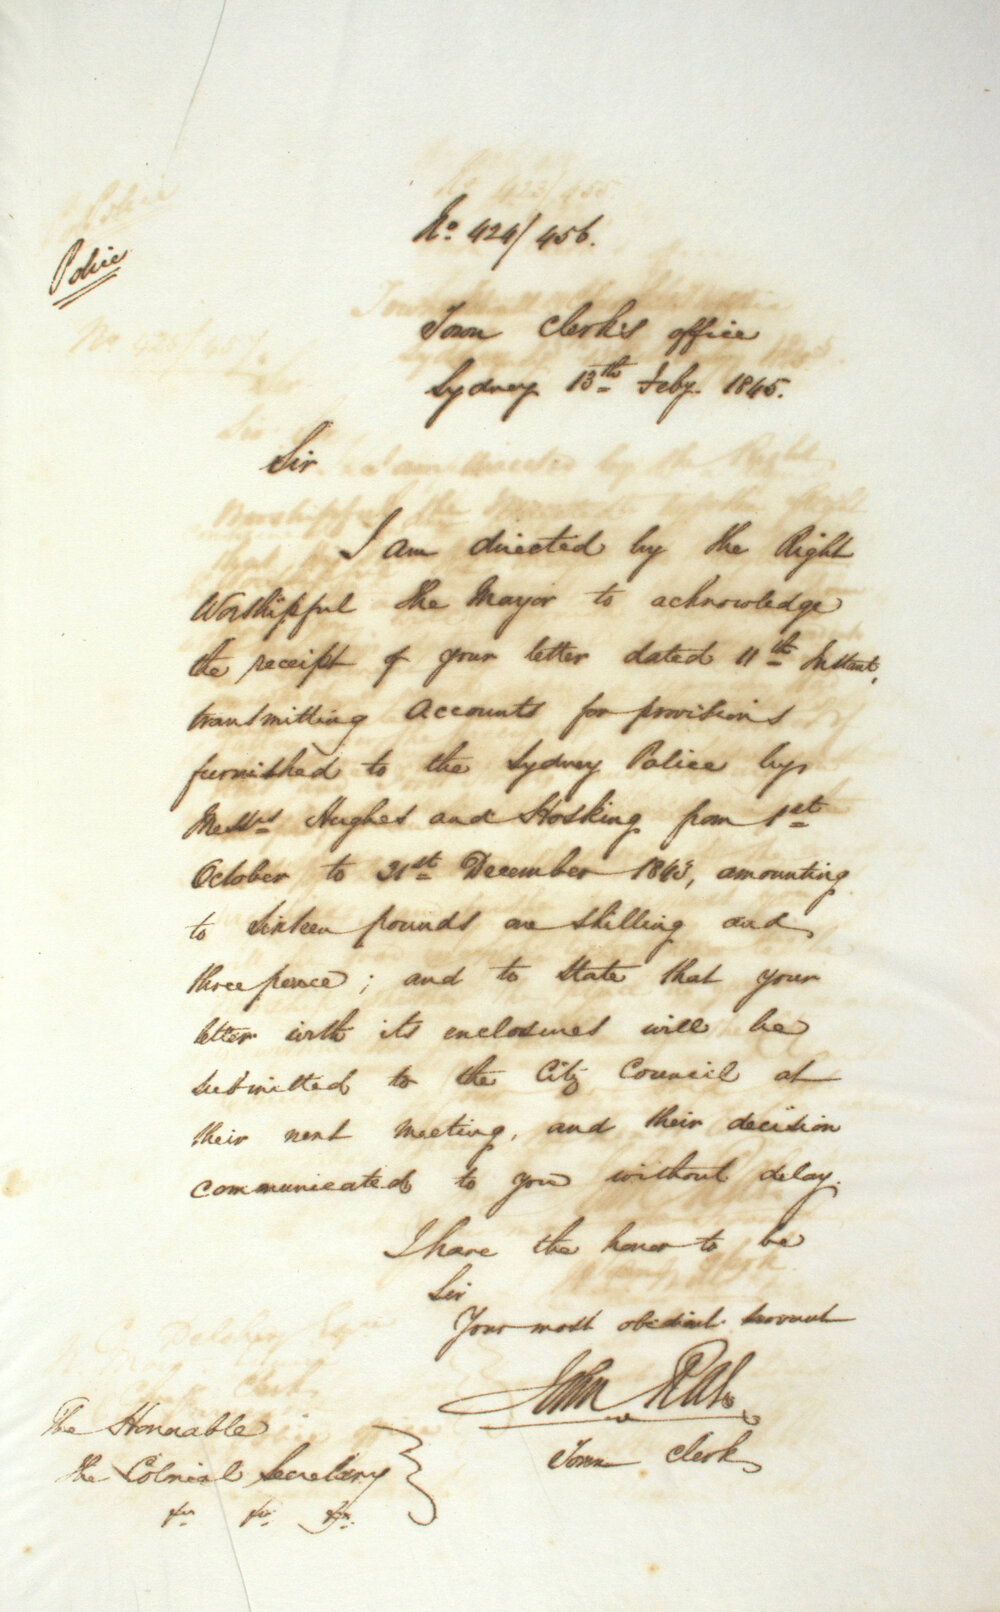 No. 424/456.
Police
Town Clerk's office
Sydney 13th Feby. 1845.
Sir
I am directed by the Right
Worshipful the Mayor to acknowledge
the receipt of your letter dated 11th Instant,
transmitting Accounts for provisions
furnished to the Sydney Police by
Messrs Hughes and Hosking from 1st
October to 31st December 1843, amounting
to Sixteen pounds one shilling and
three pence; and to State that your
letter with its enclosures will be
submitted to the City Council at
their next meeting, and their decision
communicated to you without delay.
I have the honor to be
Sir
Your most obedient servant
John
Town Clerk
The Honorable
the Colonial Secretary
&c &c &c.